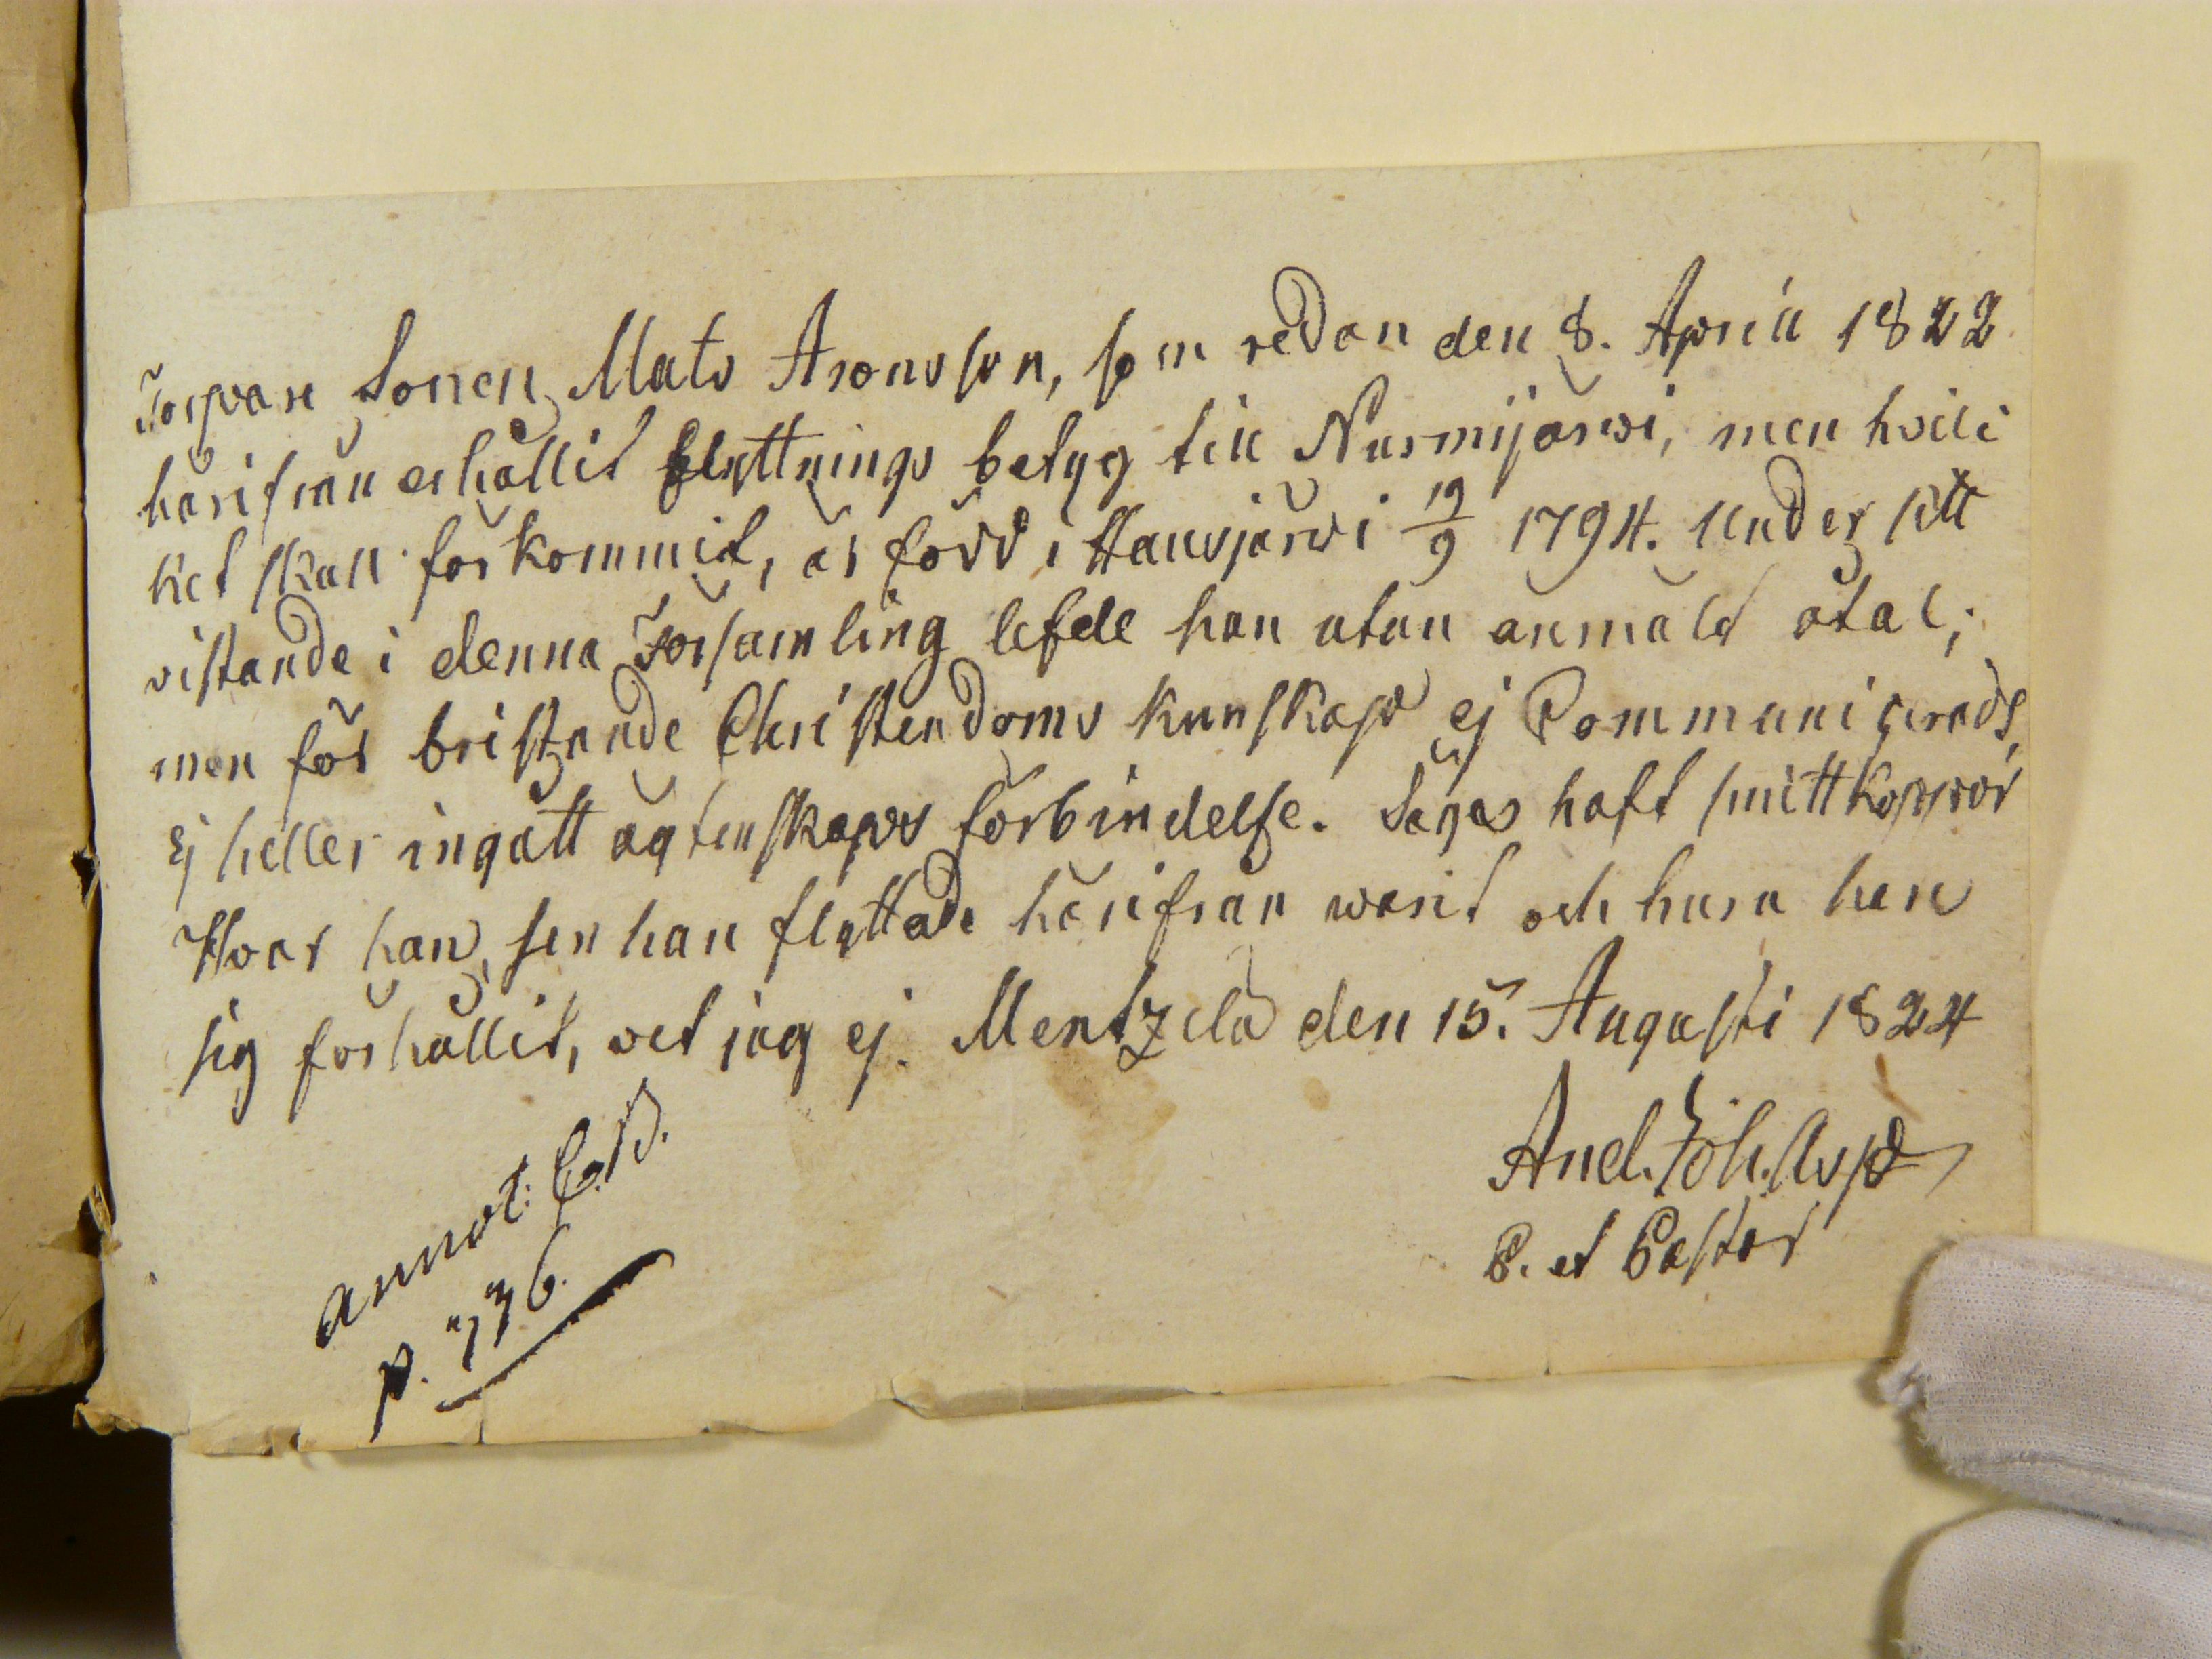 Torpare Sonen Mats Aronsson, som redan den 8. April 1822
härifrån erhållit flyttnings betyg till Nurmijärwi, men hvil
ket skall förkommit, är född i Hausjärvi 19/9 1794. Under sitt
vistande i denna Församling lefde han utan anmäld åtal;
men för bristande Christendoms kunskap ej Communicerads,
ej heller ingått ägtenskaps förbindelse. Säges haft smittkoppor
Hvar han, sen han flyttade härifrån warit och huru han
sig förhållit, vet jag ej. Mentzelä den 15. Augusti 1824
And. Joh. Asp
P. et Pastor
annot: C.B.
p. 736.